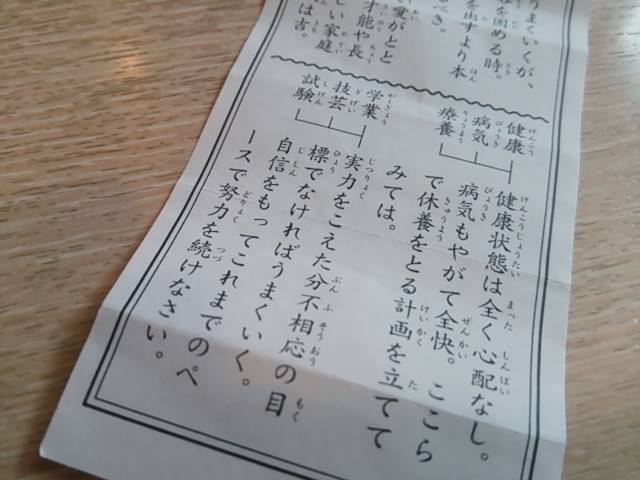 うまくいくが、
を固める時。
を出すより本
べき。
い愛がとと
才能や長
しい家庭
は吉。
健康
病気
療養
健康状態は全く心配なし。
病気もやがて全快。ここら
で休養をとる計画を立てて
みては。
学業
技芸
試験
実力をこえた分不相応の目
標でなければうまくいく。
自信をもってこれまでのペ
ースで努力を続けなさい。